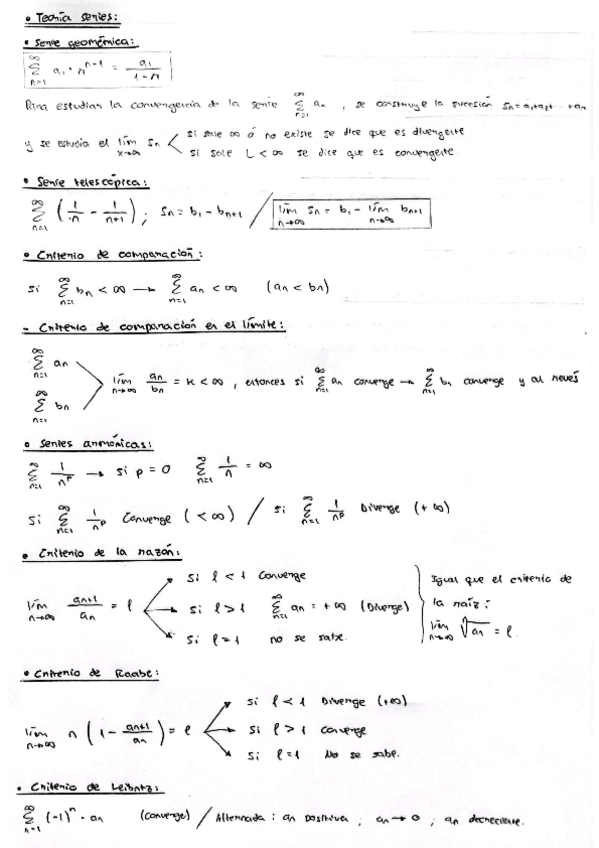 • Teoría series:
• Serie geométrica:
∞ Σ n=1 a₁ · r^(n-1) = a₁ / (1 - r)
Para estudiar la convergencia de la serie ∞ Σ n=1 an , se construye la sucesión Sn = a₁+a₂+... +an
y se estudia el lím x→∞ Sn < si sale ∞ ó no existe se dice que es divergente
si sale L < ∞ se dice que es convergente
• Serie telescópica:
∞ Σ n=1 (1/n - 1/(n+1)) ; Sn = b₁ - bn+1 / lím n→∞ Sn = b₁ - lím n→∞ bn+1
• Criterio de comparación:
si ∞ Σ n=1 bn < ∞ → ∞ Σ n=1 an < ∞ (an < bn)
- Criterio de comparación en el límite:
∞ Σ n=1 an
∞ Σ n=1 bn
lím n→∞ an/bn = K < ∞ , entonces si ∞ Σ n=1 an converge → ∞ Σ n=1 bn converge y al revés
• Series armónicas:
∞ Σ n=1 1/n^p → si p = 0 ∞ Σ n=1 1/n = ∞
si ∞ Σ n=1 1/n^p Converge (< ∞) / si ∞ Σ n=1 1/n^p Diverge (+∞)
• Criterio de la razón:
lím n→∞ an+1/an = l
si l < 1 Converge
si l > 1 ∞ Σ n=1 an = +∞ (Diverge)
si l = 1 no se sabe.
Igual que el criterio de
la raíz:
lím n→∞ √an = l.
• Criterio de Raabe:
lím n→∞ n (1 - an+1/an) = l
si l < 1 Diverge (+∞)
si l > 1 Converge
si l = 1 No se sabe.
• Criterio de Leibniz:
∞ Σ n=1 (-1)^n · an (Converge) / Alternada : an positiva , an → 0 ; an decreciente.